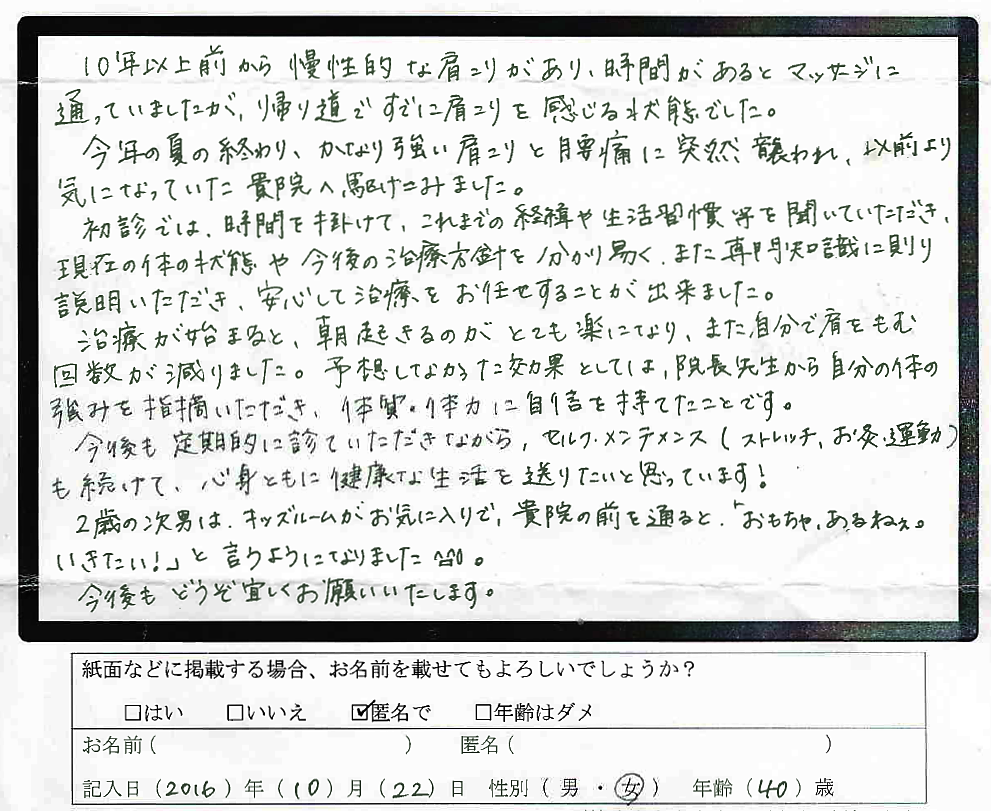 10年以上前から慢性的な肩こりがあり、時間があるとマッサージに
通っていましたが、帰り道ですでに肩こりを感じる状態でした。
今年の夏の終わり、かなり強い肩こりと腰痛に突然襲われ、以前より
気になっていた貴院へ駆けこみました。
初診では、時間を掛けて、これまでの経緯や生活習慣等を聞いていただき、
現在の体の状態や今後の治療方針を分かり易く、また専門知識に則り
説明いただき、安心して治療をお任せすることが出来ました。
治療が始まると、朝起きるのがとても楽になり、また自分で肩をもむ
回数が減りました。予想しなかった効果としては、院長先生から自分の体の
強みを指摘いただき、体質・体力に自信を持てたことです。
今後も定期的に診ていただきながら、セルフ・メンテメンス(ストレッチ、お灸・運動)
も続けて、心身ともに健康な生活を送りたいと思っています!
2歳の次男は、キッズルームがお気に入りで、貴院の前を通ると、「おもちゃ、あるねぇ。
いきたい!」と言うようになりました^^。
今後もどうぞ宜しくお願いいたします。
紙面などに掲載する場合、お名前を載せてもよろしいでしょうか?
□はい □いいえ ☑匿名で □年齢はダメ
お名前( ) 匿名( )
記入日(2016)年(10)月(22)日 性別(男・女) 年齢(40)歳